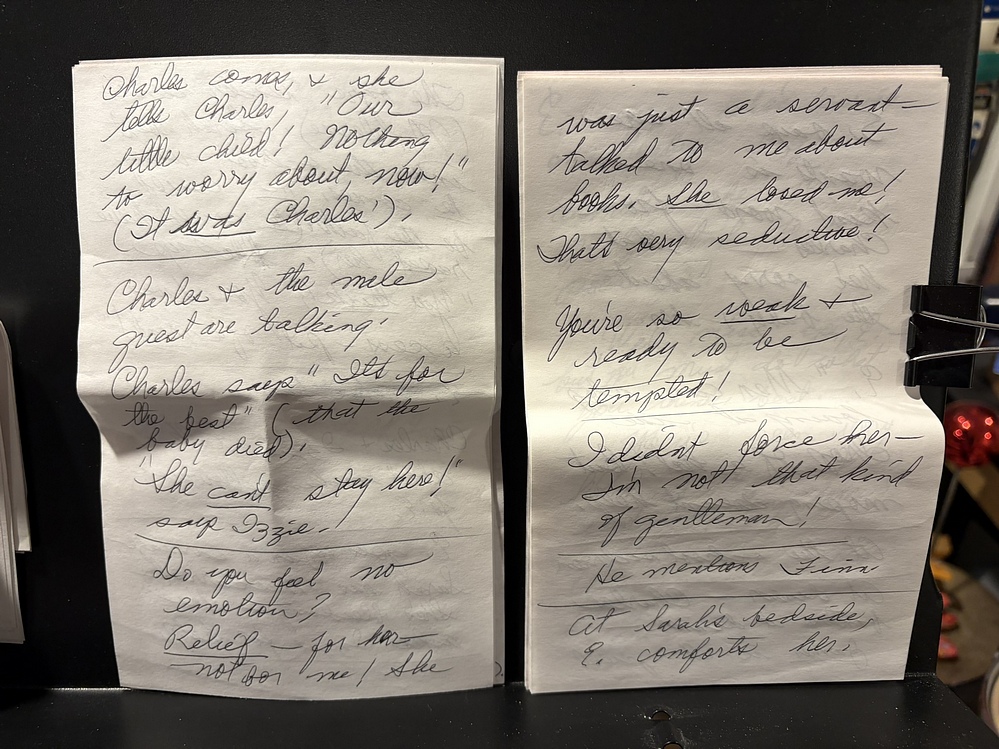 Charles comes, & she
tells Charles, "Our
little child! Nothing
to worry about, now!"
(It was Charles').
Charles & the male
guest are talking.
Charles says "It's for
the best" (that the
baby died).
"She can't stay here!"
says Izzie.
Do you feel no
emotion?
Relief – for her –
not for me! She
was just a servant –
talked to me about
books. She loved me!
That's very seductive!
You're so weak &
ready to be
tempted!
I didn't force her –
I'm not that kind
of gentleman!
He mentions Finn
At Sarah's bedside,
E. comforts her.